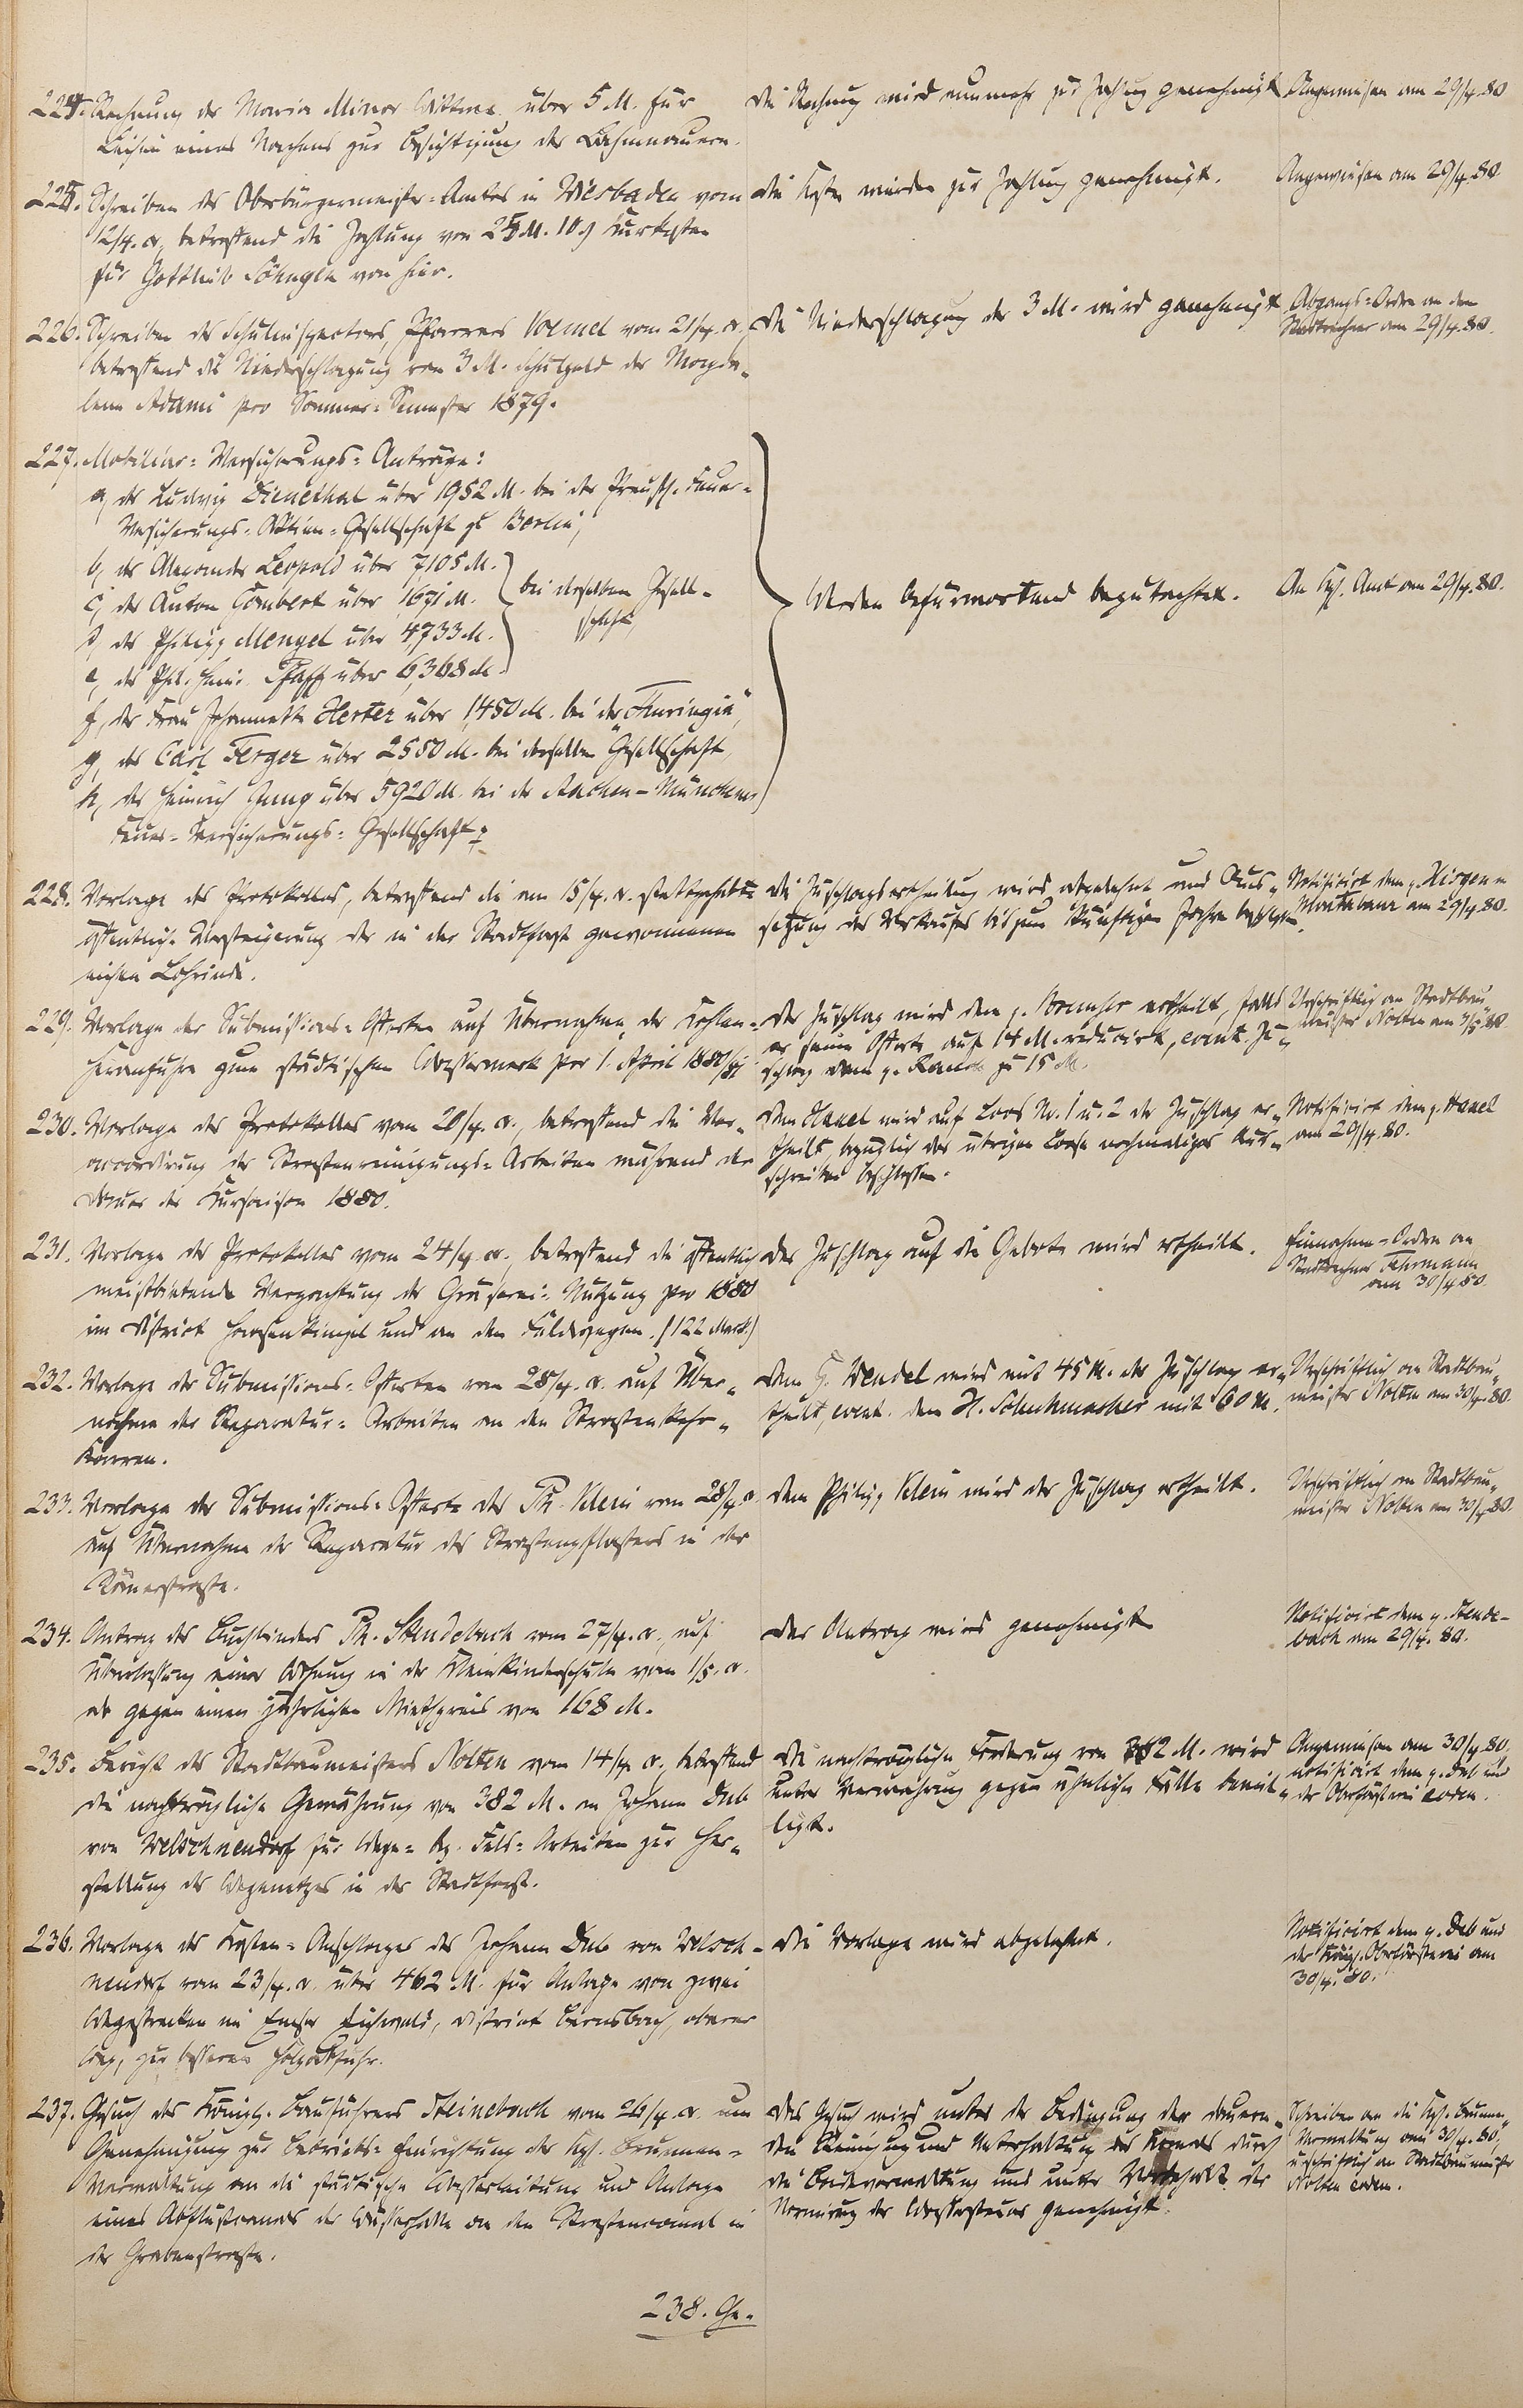 224. Rechnung der Maria Minor Wittwe, über 5 M. für
Leihen eines Nachens zur Besichtigung der Lahnmauern.
Die Rechnung wird nunmehr zur Zahlung genehmigt
Angewiesen am 29/4.80
225. Schreiben des Oberbürgermeister-Amtes in Wiesbaden vom
12/4. a., betreffend die Zahlung von 25 M. 10 ₰ Kurkosten
für Gottlieb Söhngen von hier.
Die Kosten werden zur Zahlung genehmigt.
Angewiesen am 29/4.80
226. Schreiben des Schulinspectors, Pfarrers Voemel vom 21/4. a.
betreffend die Niederschlagung von 3 M. Schulgeld der Magda-
lena Adami pro Sommer-Semester 1879.
Die Niederschlagung der 3 M. wird genehmigt
Abgangs-Ordre an den
Stadtrechner am 29/4.80.
227. Mobiliar-Versicherungs-Anträge:
a, des Ludwig Dienethal über 1952 M. bei der Preuß. Feuer-
Versicherungs-Aktien-Gesellschaft zu Berlin,
b, des Alexander Leopold über 7105 M.
c, des Anton Gombert über 1671 M.
d, des Philipp Mengel über 4733 M.
e, des Phil. Heinr. Pfaff über 6,368 M.
bei derselben Gesell-
schaft,
f, der Frau Johannette Herter über 1,450 M. bei der „Thuringia“,
g, des Carl Ferger über 2550 M. bei derselben Gesellschaft,
h, des Heinrich Jung über 5920 M. bei der Aachen-Münchener
Feuer-Versicherungs-Gesellschaft.
Werden befürwortend begutachtet.
An Kgl. Amt am 29/4.80.
228. Vorlage des Protokolles, betreffend die am 15/4. a. stattgehabte
öffentliche Versteigerung der in der Stadtforst gewonnenen
eichen Lohrinde.
Die Zuschlagsertheilung wird abgelehnt und Aus-
setzung des Verkaufes bis zum künftigen Jahre beschlossen.
Notificirt dem p. Hisgen in
Montabaur am 29/4.80.
229. Vorlage der Submissions-Offerten auf Übernahme der Kohlen-
heranfuhr zum städtischen Wasserwerk per 1. April 1880/81
Der Zuschlag wird dem p. ertheilt, falls
er seine Offerte auf 14 M. reducirt, event. Zu-
schlag dem p. zu 15 M.
Urschriftlich an Stadtbau-
meister Nolten am 3/5.80
230. Vorlage des Protokolles vom 20/4. a., betreffend die Ver-
accordirung der Straßenreinigungs-Arbeiten während der
Dauer der Kursaison 1880.
Dem Hanel wird auf Loos No. 1 u. 2 der Zuschlag er-
theilt, bezüglich der übrigen Loose nochmaliges Aus-
schreiben beschlossen.
Notificirt dem p. Hanel
am 29/4.80.
231. Vorlage des Protokolles vom 24/4. a., betreffend die öffentlich
meistbietende Verpachtung der Gräserei-Nutzung pro 1880
im District und an den Feldwegen. (122 Mark)
Der Zuschlag auf die Gebote wird ertheilt.
Einnahme-Ordre an
Stadtrechner Fuhrmann
am 30/4.80.
232. Vorlage der Submissions-Offerten vom 28/4. a. auf Über-
nahme der Reparatur-Arbeiten an den Straßenkehr-
Karren.
Dem H. Wendel wird mit 45 M. der Zuschlag er-
theilt, event. dem H. Schuhmacher mit 60 M.
Urschriftlich an Stadtbau-
meister Nolten am 30/4.80.
233. Vorlage der Submissions-Offerte des Ph. Klein vom 28/4. a.
auf Übernahme der Reparatur des Straßenpflasters in der
Römerstraße.
Dem Philipp Klein wird der Zuschlag ertheilt.
Urschriftlich an Stadtbau-
meister Nolten am 30/4.80.
234. Antrag des Buchbinders Ph. Stendebach vom 27/4. a., auf
Überlassung einer Wohnung in der Kleinkinderschule vom 1/5. a.
ab gegen einen jährlichen Miethpreis von 168 M.
Der Antrag wird genehmigt
Notificirt dem p. Stende-
bach am 29/4.80.
235. Bericht des Stadtbaumeisters Nolten vom 14/4 a., betreffend
die nachträgliche Gewährung von 382 M. an Johann Dub
von Welschneudorf für Wege- bez. Fels-Arbeiten zur Her-
stellung des Wegenetzes in der Stadtforst.
Die nachträgliche Forderung von 382 M. wird
unter Verwahrung gegen ähnliche Fälle bewil-
ligt.
Angewiesen am 30/4.80.
notificirt dem p. Dub und
der Oberförsterei eodem.
236. Vorlage des Kosten-Anschlages des Johann Dub von Welsch-
neudorf vom 23/4. a. über 462 M. für Anlage von zwei
Wegestrecken im Emser Eichwald, District Bernsbach, oberer
Weg, zur besseren Holzabfuhr.
Die Vorlage wird abgelehnt.
Notificirt dem p. Dub und
der Königl. Oberförsterei am
30/4.80.
237. Gesuch des Königl. Bauführers Steinebach vom 26/4. a. um
Genehmigung zur Betriebs-Einrichtung der Kgl. Brunnen-
Verwaltung an die städtische Wasserleitung und Anlage
eines Abflußkanals der Wasserhalle an den Straßencanal in
der Grabenstraße.
Das Gesuch wird unter der Bedingung der dauern-
den Reinigung und Unterhaltung des Kanals durch
die Badeverwaltung und unter Vorbehalt der
Normirung der Wassersteuer genehmigt.
Schreiben an die Kgl. Brunnen-
Verwaltung am 30/4.80,
urschriftlich an Stadtbaumeister
Nolten eodem.
238. Ge-